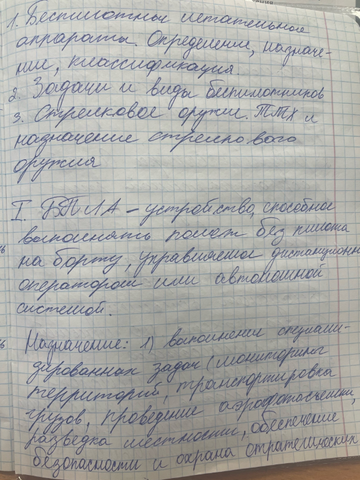 1. Беспилотные летательные
аппараты. Определение, назначе-
ние, классификация
2. Задачи и виды беспилотников
3. Стрелковое оружие. ТТХ и
назначение стрелкового
оружия
I. БПЛА – устройство, способное
выполнять полет без пилота
на борту, управляемое дистанционно
оператором или автономной
системой.
Назначение: 1) выполнении специали-
зированных задач (мониторинг
территорий, транспортировка
грузов, проведение аэрофотосъемки,
разведка местности, обеспечение
безопасности и охрана стратегических